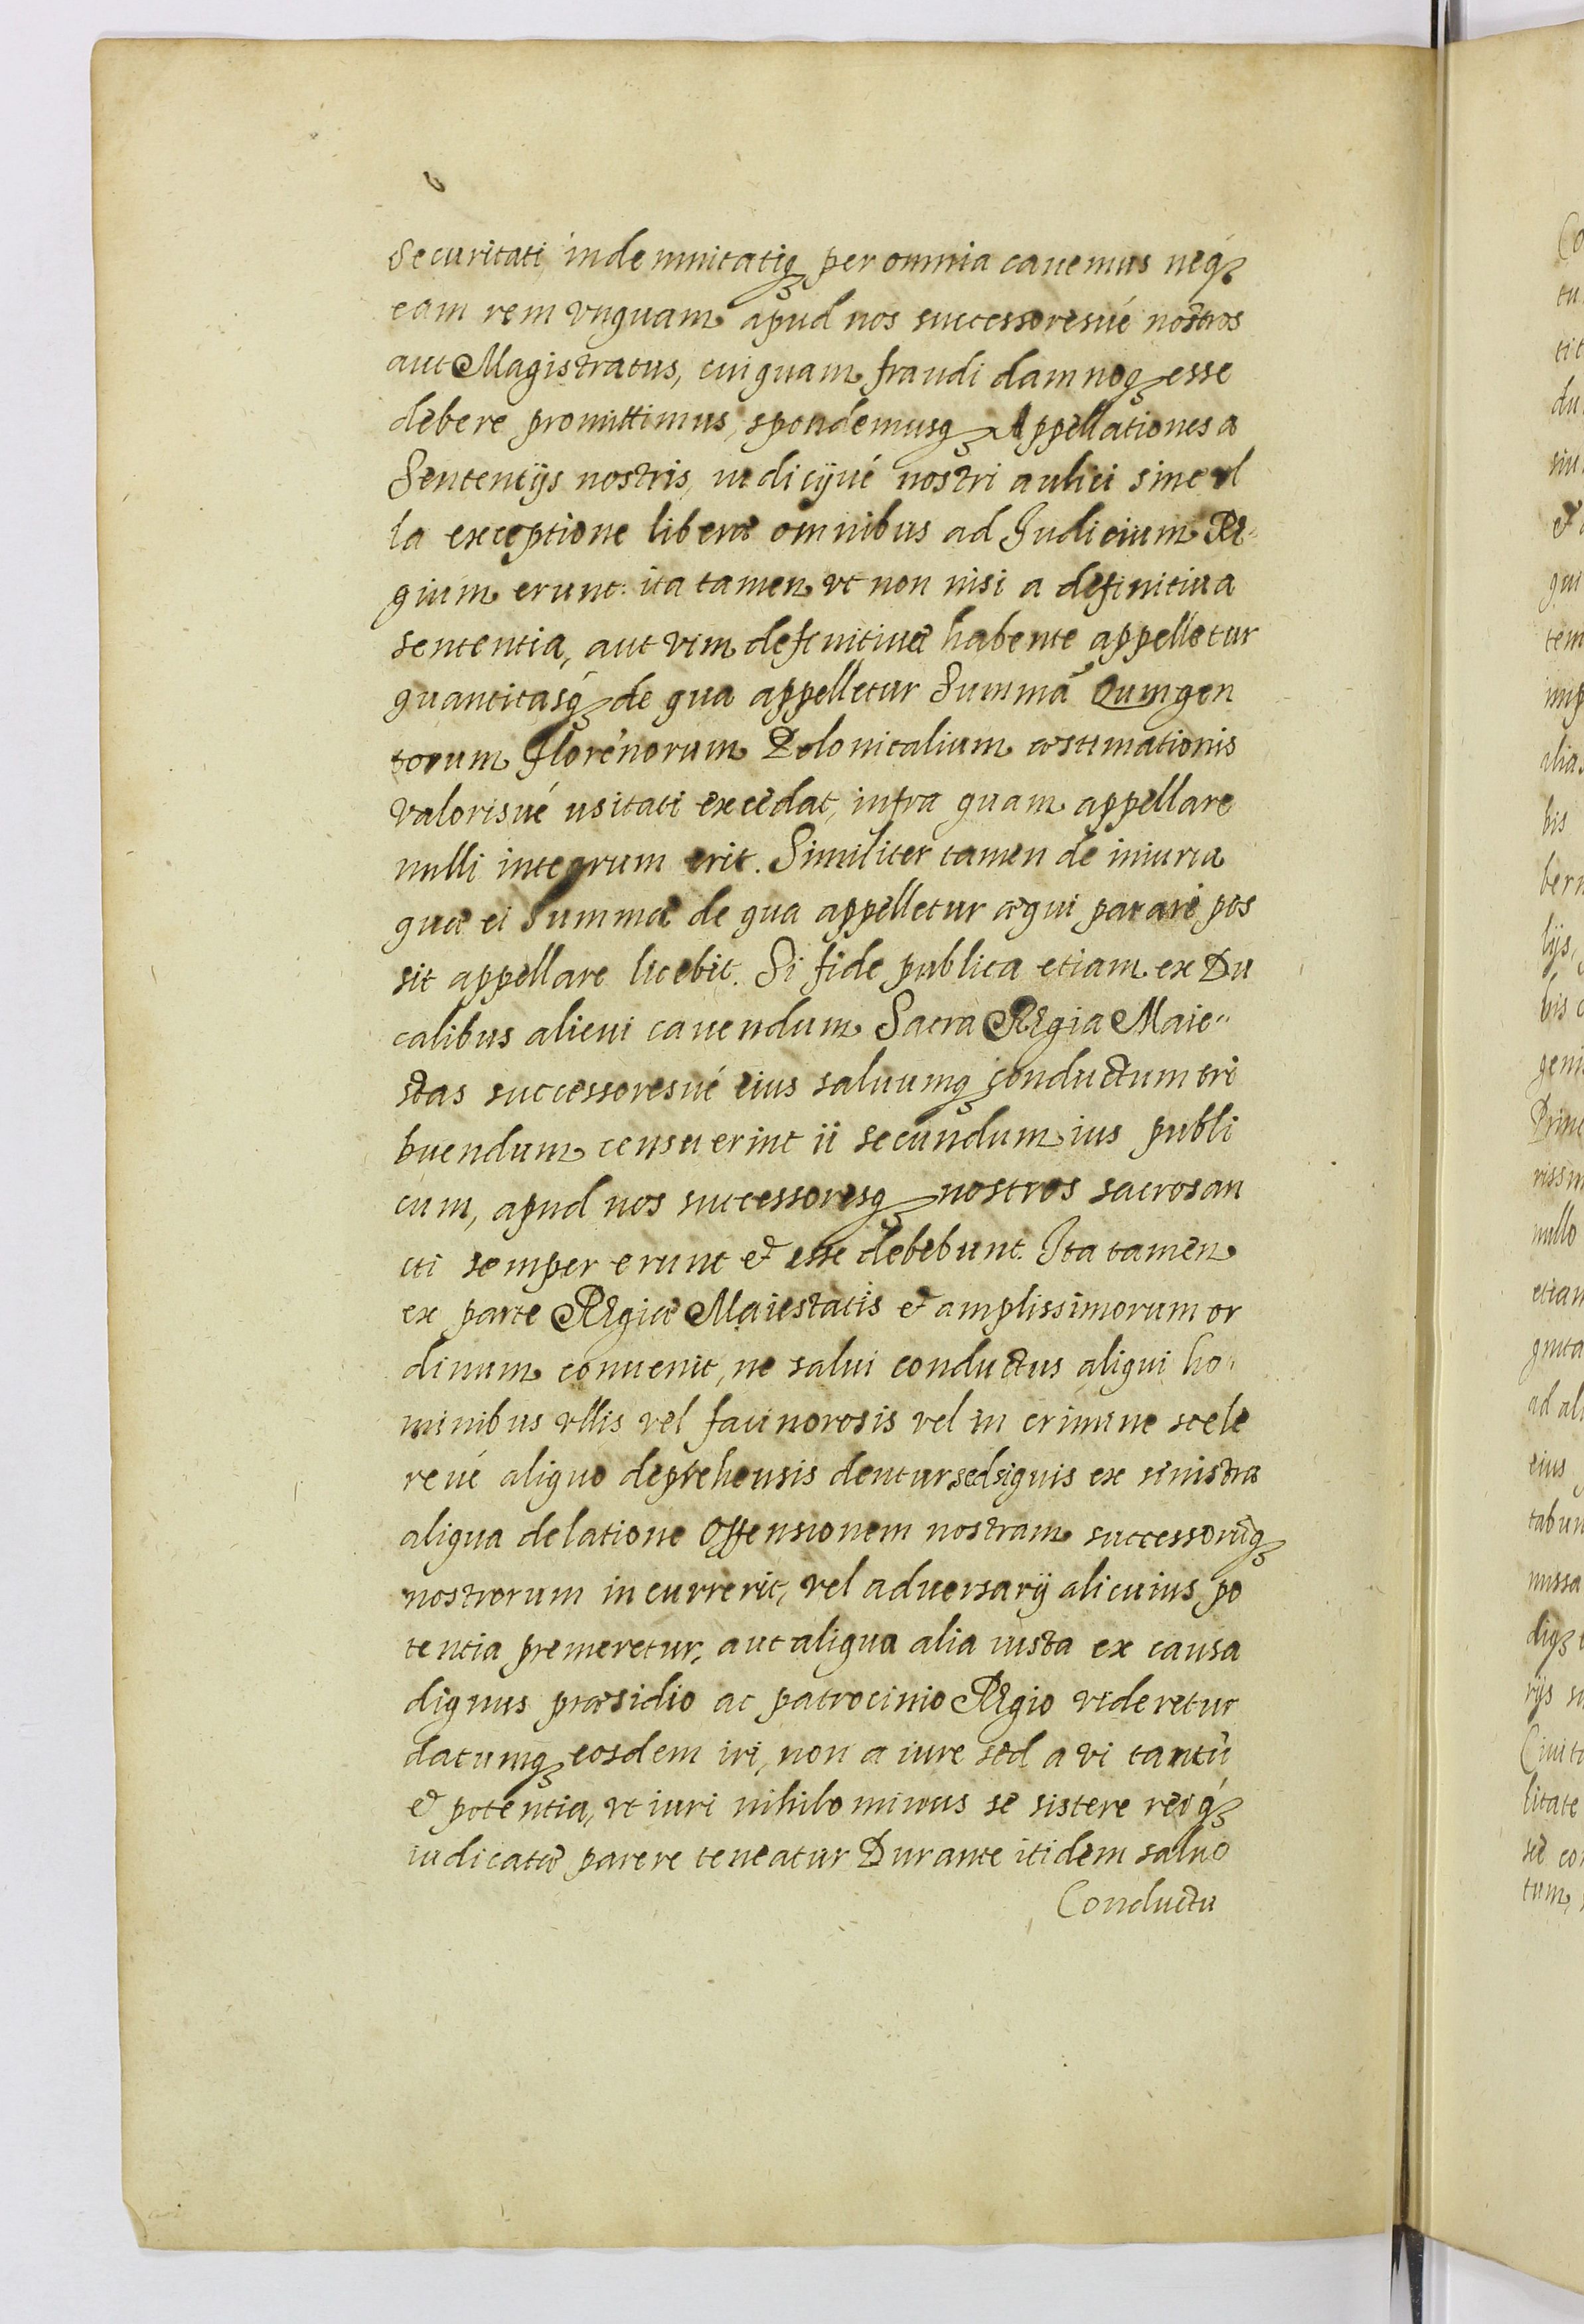 Securitati, indemnitatiq₃ per omnia cauemus neq́₃
eam rem vnquam apud nos successoresué nostros
aut Magistratus, cuiquam fraudi damnoq₃ esse
debere promittimus, spondemusq₃ Appellationes a
Sententijs nostris, iudicijué nostri aulici sine vl
la exceptione liberæ omnibus ad Iudicium Re-
gium erunt: ita tamen vt non nisi a definitiua
sententia, aut vim definitiuæ habente appelletur
quantitasq́₃ de qua appelletur Summã Quingen
torum Florenorum Polonicalium æstimationis
valorisué usitati excedat, infra quam appellare
nulli integrum erit. Similiter tamen de iniuria
quæ ei Summæ de qua appelletur æqui parari pos
sit appellare licebit. Si fide publica etiam ex Du
calibus alicui cauendum Sacra Regia Maie-
stas successoresué eius saluumq₃ conductum tri
buendum censuerint ii secundum ius publi
cum, apud nos successoresq₃ nostros sacrosan
cti semper erunt & esse debebunt. Ita tamen
ex parte Regiæ Maiestatis & amplissimorum or
dinum conuenit, ne salui conductus aliqui ho-
minibus vllis vel facinorosis vel in crimine scele
reué aliquo deprehensis dentur sed siquis ex sinistra
aliqua delatione Offensionem nostram successorũq₃
nostrorum incurrerit, vel aduersarij alicuius po
tentia premeretur, aut aliqua alia iusta ex causa
dignus præsidio ac patrocinio Regio videretur
datumq₃ eosdem iri, non a iure sed a vi tantũ
& potentia, vt iuri nihilominus se sistere reiq́₃
iudicatæ parere teneatur Durante itidem saluo
Conductu